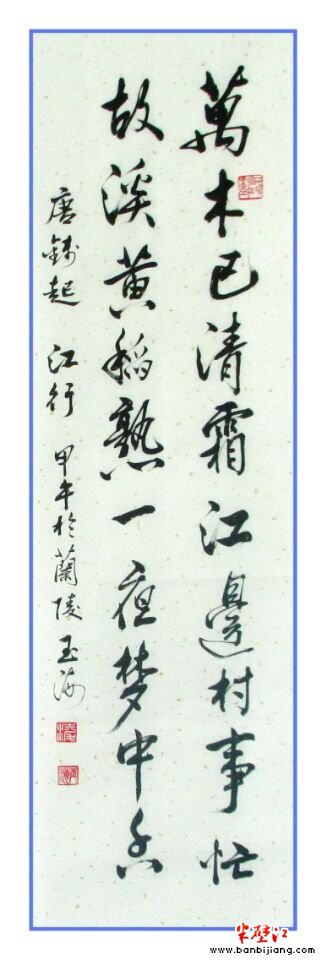 萬木已清霜江邊村事忙
故溪黄稻熟一夜梦中香
唐錢起 江行 甲午於蘭陵 玉海
半壁江
www.banbijiang.com